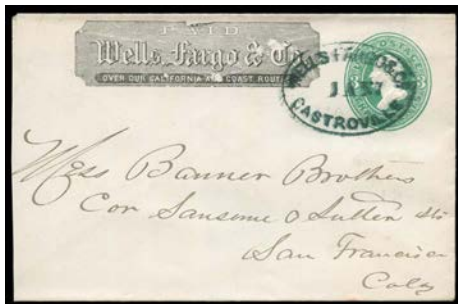 PAID
Wells, Fargo & Co
OVER OUR CALIFORNIA AND COAST ROUTES
WELLS FARGO & CO
CASTROVILLE
POSTAGE
Mess Banner Brothers
Cor Sansome & Sutter Sts
San Francisco